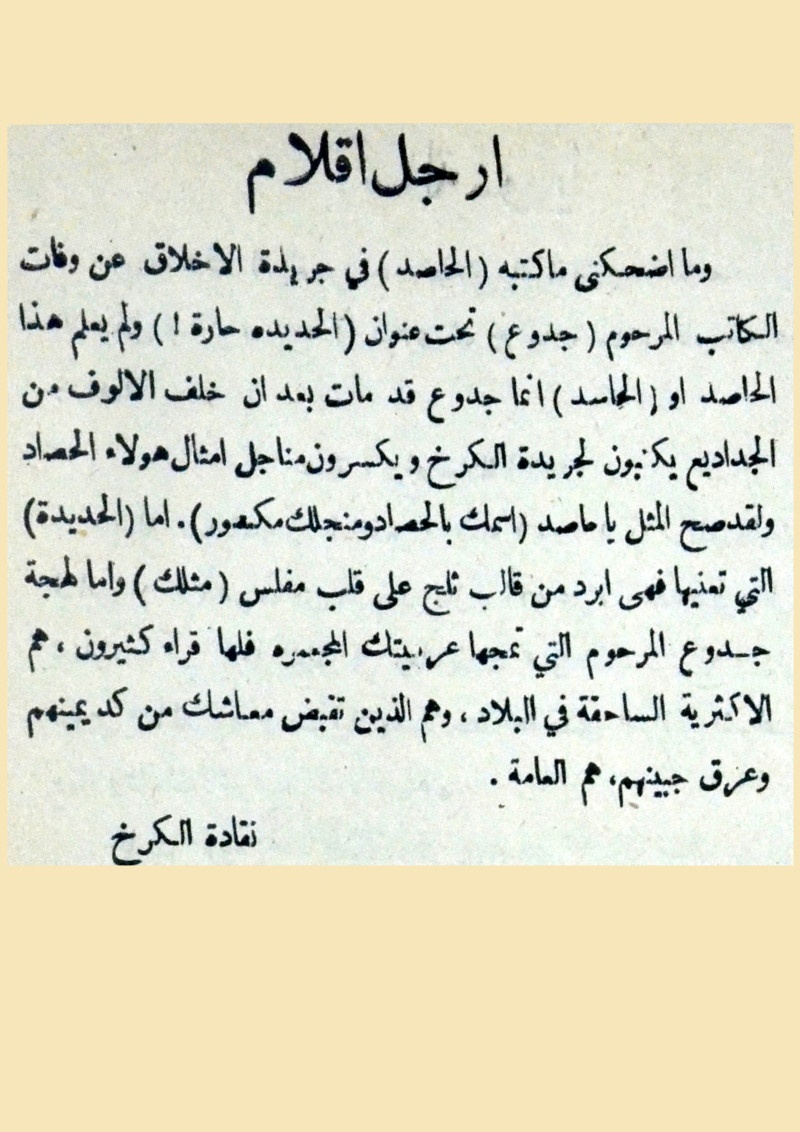 ارجل اقلام
وما اضحكنى ماكتبه (الحاصد) في جريدة الاخلاق عن وفات
الكاتب المرحوم (جدوع) تحت عنوان (الحديده حارة !) ولم يعلم هذا
الحاصد او (الحاسد) انما جدوع قد مات بعد ان خلف الالوف من
الجداديع يكتبون لجريدة الكرخ ويكسرون مناجل امثال هولاء الحصاد
ولقد صح المثل يا حاصد (اسمك بالحصاد ومنجلك مكسور). اما (الحديدة)
التي تعنيها فهى ابرد من قالب ثلج على قلب مفلس (مثلك) واما لهجة
جدوع المرحوم التي تمجها عربيتك فلها قراء كثيرون ، هم
الاكثرية الساحقة في البلاد ، وهم الذين تقبض معاشك من كد يمينهم
وعرق جبينهم، هم العامة .
نقادة الكرخ